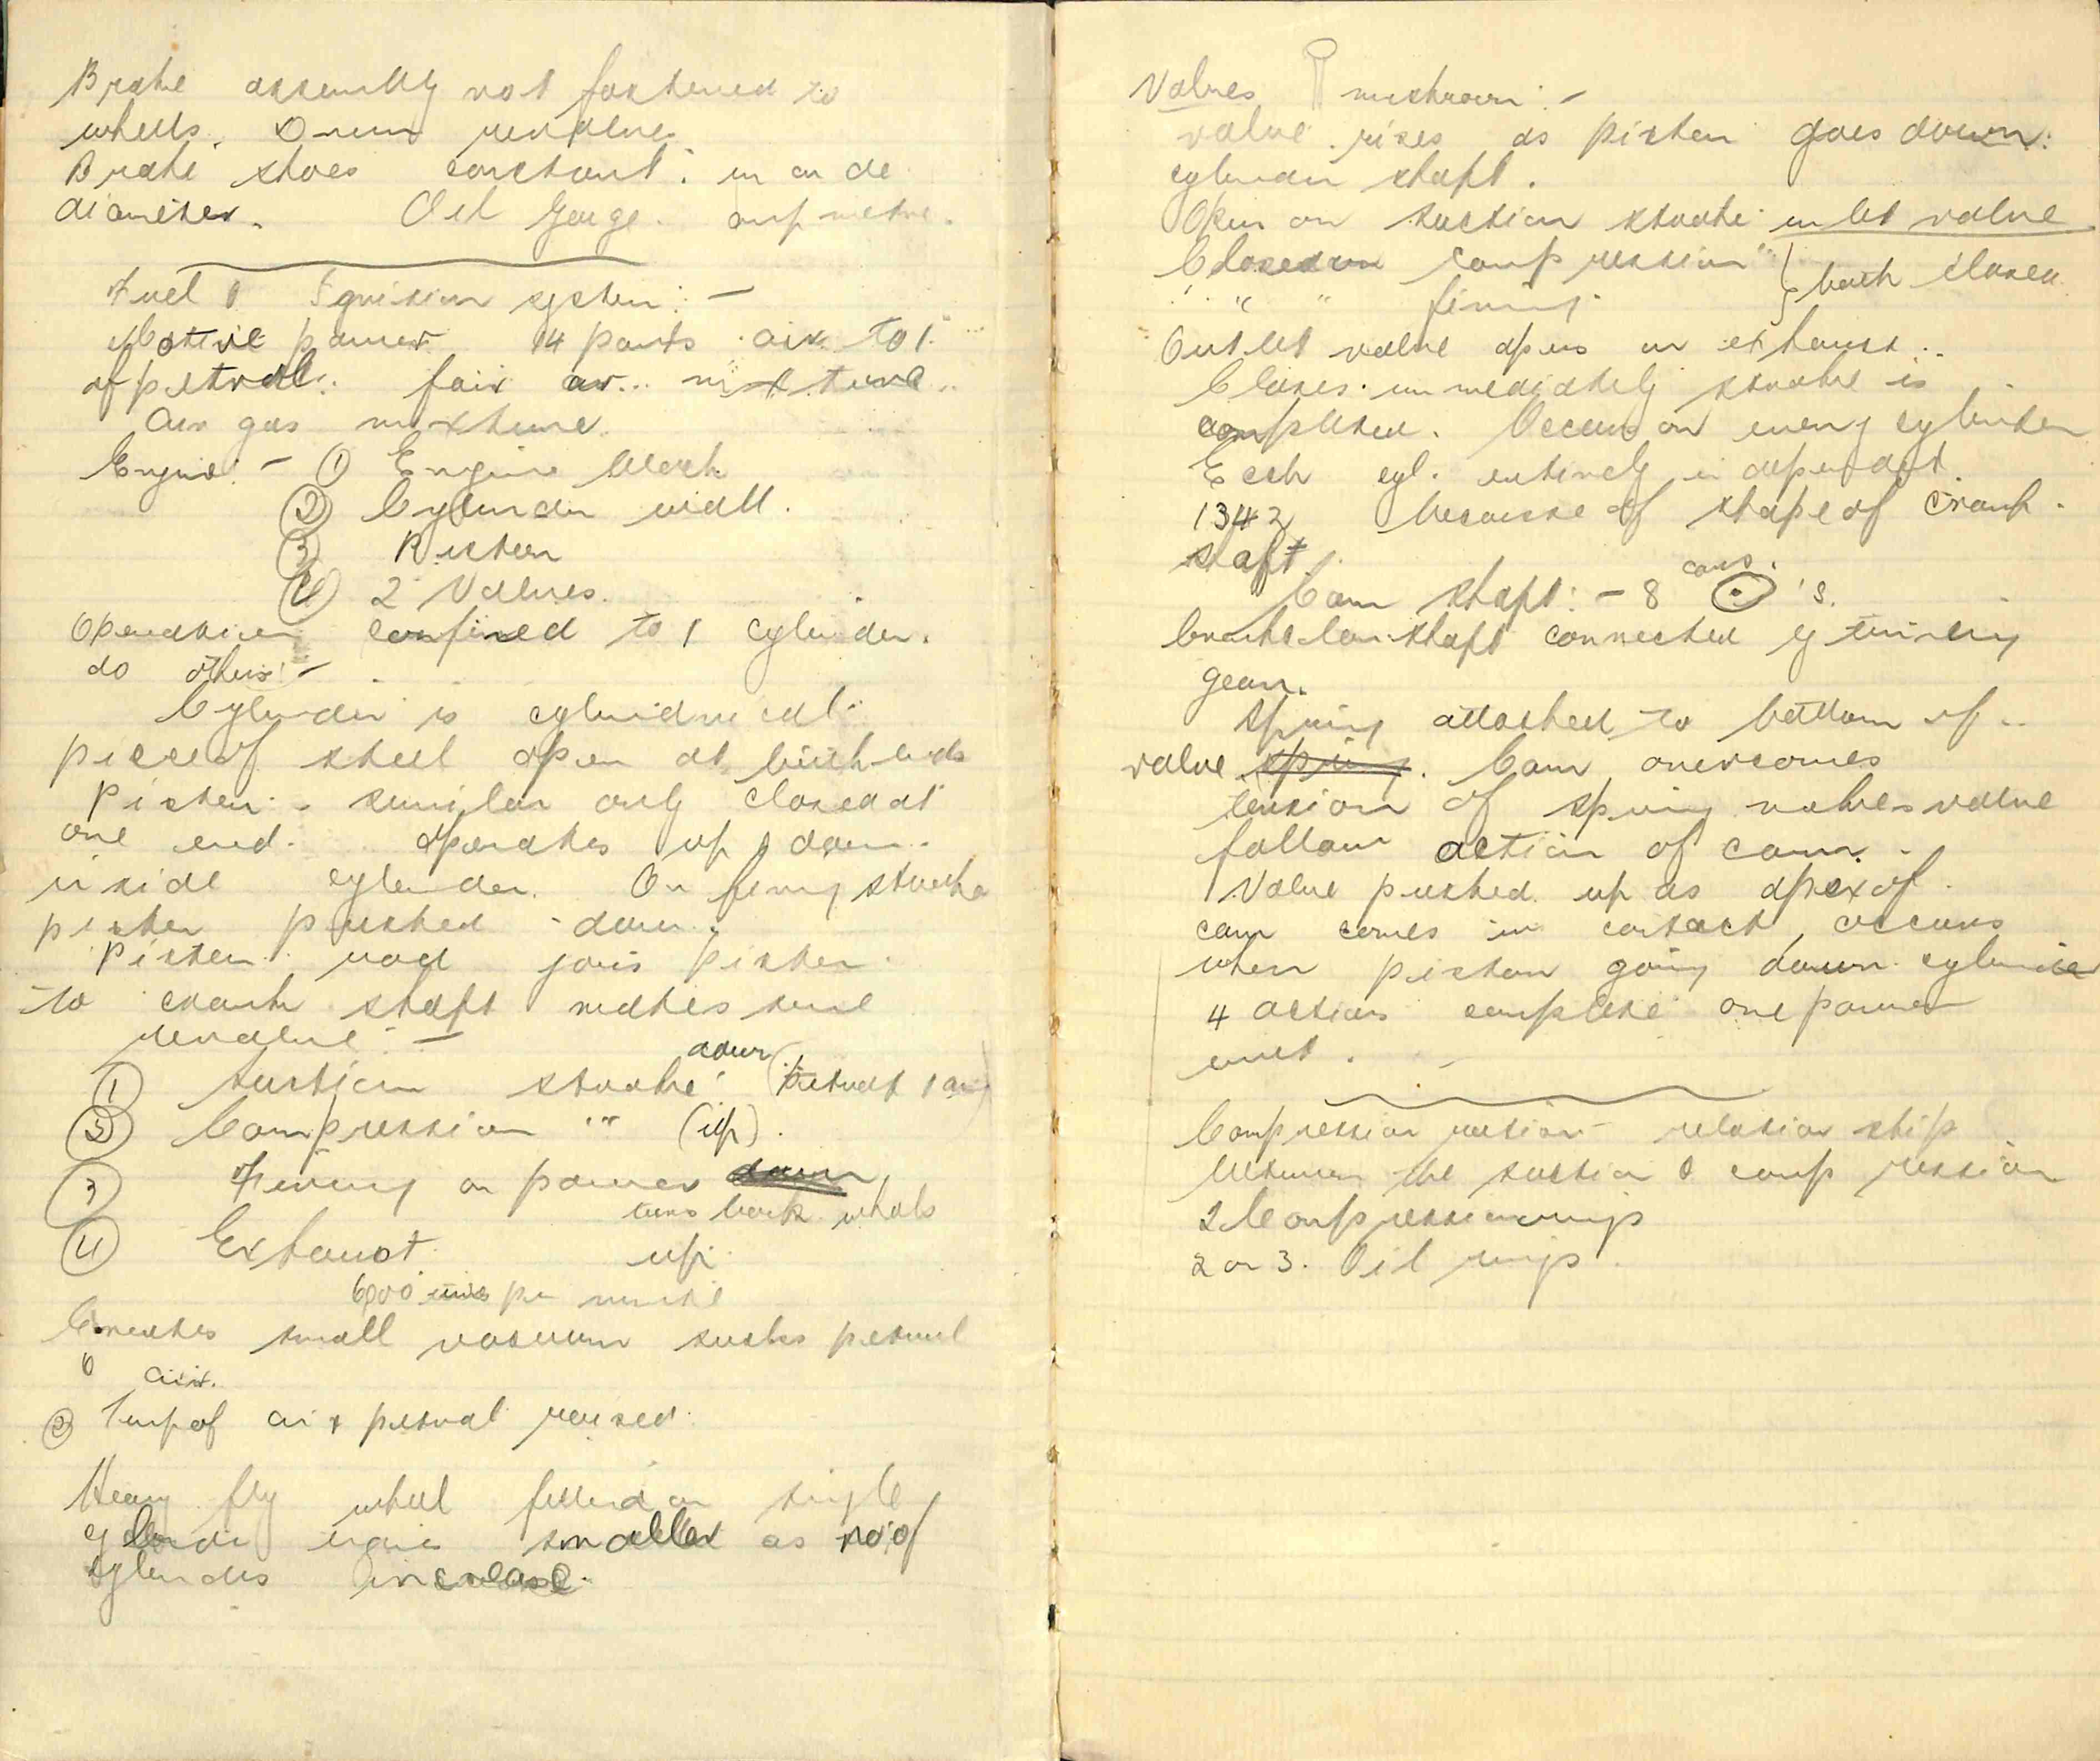 Brake assembly not fastened to
wheels. Drum revolves.
Brake shoes constant in
diameter. Oil Gauge. ampmetre.
Fuel & Ignision system: -
Motive power 14 parts air to 1
of petrol. fair av. mixture
air gas mixture.
Engine: - ① Engine block
② Cylinder wall.
③ Pisten
④ 2 Valves.
Operasion confined to 1 cylinder.
do others: -
Cylinder is cylindrical
piece of steel open at both ends
Pisten: - similar only closed at
one end. Operates up & down.
inside cylinder. On firing stroke
pisten pushed down.
Pisten rod joins pisten
to crank shaft makes
revolve: -
① Suction stroke down (petrol & air)
② Compression " " (up).
③ Firing or power down
turns back wheels
④ Exhaust up.
6000 per minute
Creates small vacuum sucks petrol
& air.
② Temp of air & petrol raised.
Heavy fly wheel fitted on single
cylinder engine smaller as no of
cylinders increase.
Valves mushroom: -
valve rises as pisten goes down.
cylinder shaft.
Open on suction stroke inlet valve
Closed on compression " } both closed
" " firing
Outlet valve opens on exhaust.
Closes immediately stroke is
completed. Occurs on every cylinder
Each cyl. entirely independant
1342 because of shape of crank
shaft.
Cam shaft: - 8 cams 's.
Crank & Cam shaft connected by timing
gear.
Spring attached to bottom of
valve spring. Cam overcomes
tension of spring makes valve
follow action of cam.
Valve pushed up as apex of
cam comes in contact, occurs
when piston going down cylinder
4 actions complete one power
unit.
Compression ration relation ship
between the suction & compression
2 Compression rings
2 or 3. Oil rings.